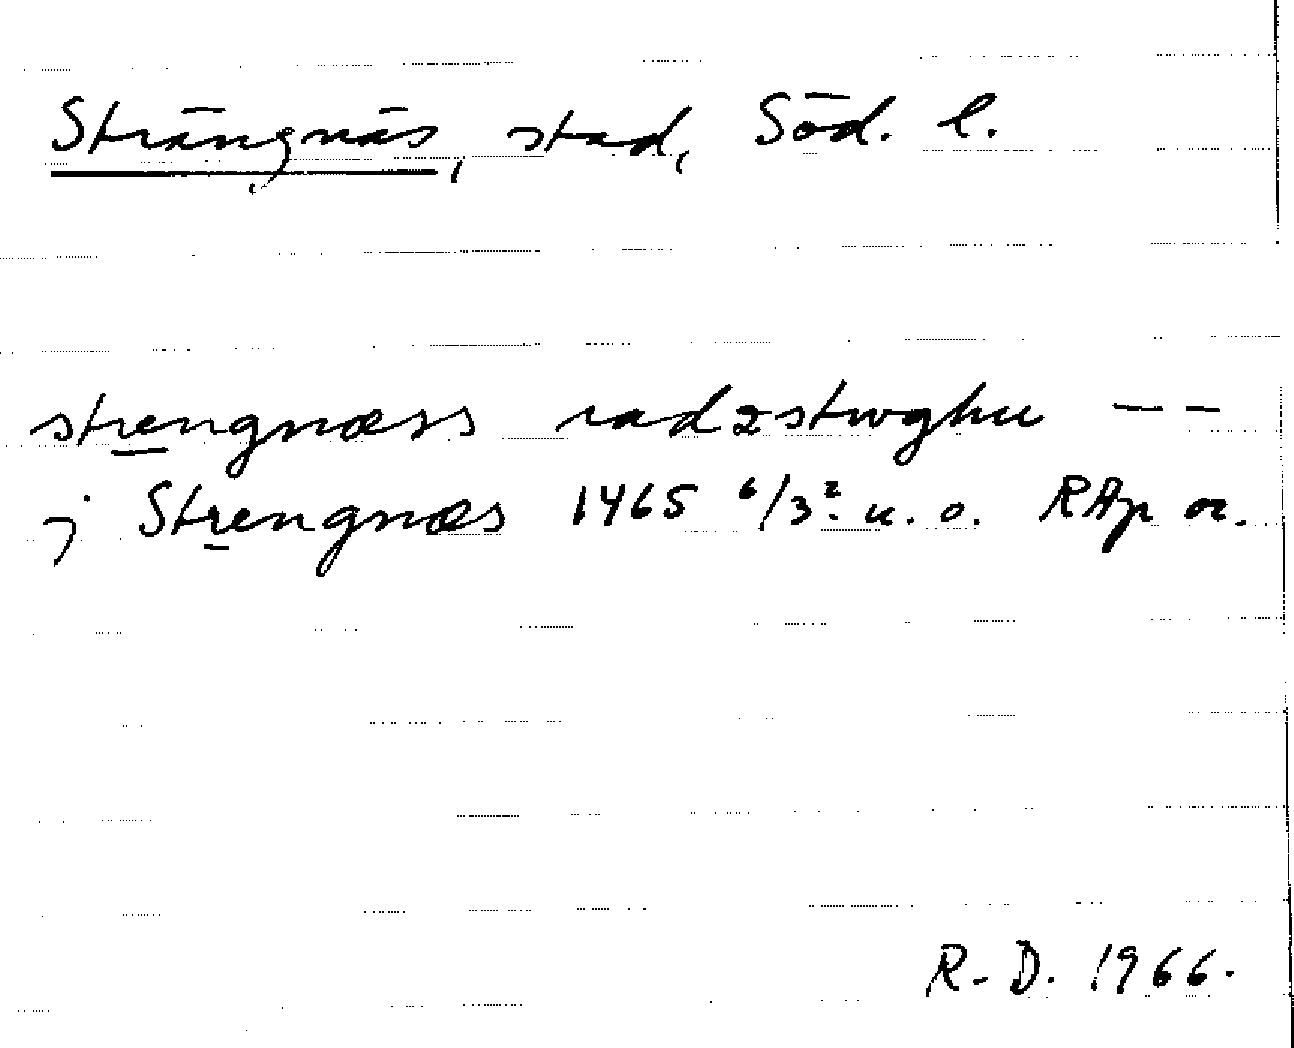 Strängnäs, stad, Söd. l.
strengnæss radzstwghu — —
j Strengnæs 1465 6/3 2: u. o. RAp or.
R-D. 1966.